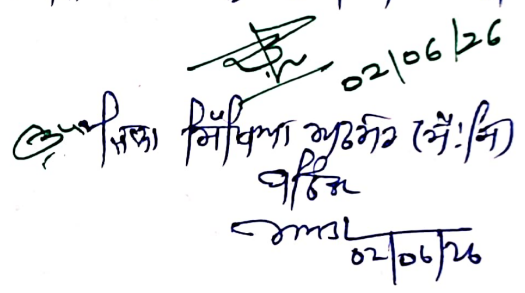 02/06/26
ਉਪ ਜਿਲਾ ਸਿੱਖਿਆ ਅਫਸਰ (ਸੈ:ਸਿ)
02/06/26